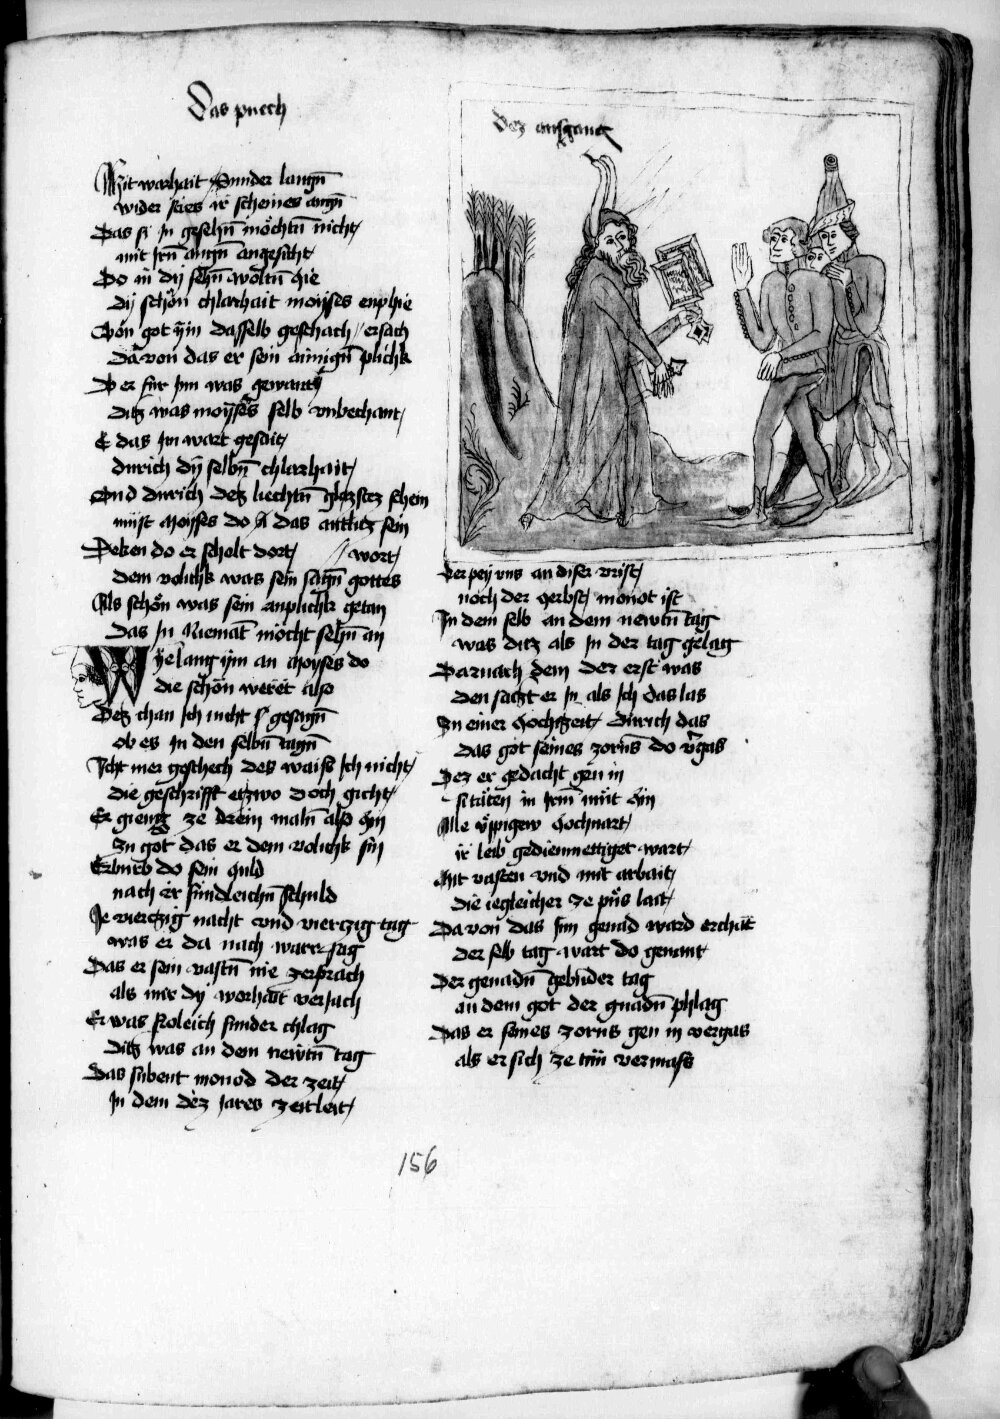 Das puech
Dez ausganck
Mit warhait Sunder laugn̄
wider sties ir scheines augn̄
Das si In gesehn̄ möchtn̄ nicht
mit Irn̄ augn̄ angesicht
Do in dy sehn̄ woltn̄ hie
dy schön chlarhait moyses enphie
Von got ym dasselb geschach ersach
da von das er sein ainign̄ plickh
D er für Im was gewant
ditz was moyses selb vnbechant
E das Im wart gesait
durich dy selbn̄ chlarhait
Vnd durich dez liechtn̄ glizstez schein
must Moyses do das antlitz sein
Deken do er scholt dort wort
dem volchk was sein sagn̄ gottes
Als schön was sein anplickh getan
das In Niemāt möcht sehn̄ an
Wye lang ym an Moyses do
die schön weret also
Dez chan Ich nicht gesagn̄
ob es In den selbn̄ tagn̄
Icht mer geschech des waiss Ich nicht
die geschrifft etzwo doch gicht
Er gieng ze drein maln̄ also hin
zu got das er dem volichk sin
Erburb do sein huld
nach ir sündleichn̄ schuld
Je vierczig nacht vnd vierczig tag
was er da nach warer sag
Das er sein vastn̄ nie zerprach
als mir dy worhait veriach
Er was froleich sunder chlag
ditz was an dem newtn̄ tag
Das sibent monod der zeit
In dem dez Iares zeit leit
Der pey vns an diser vrist
noch der herbst monot ist
In dem selb an dem newtn̄ tag
was ditz als In der tag gelag
Darnach dem der erst was
den saczt er In als Ich das las
Zu einer Hochgzeit durich das
das got seines zorns do v̄gas
Dez er gedacht gen in
si tätten in Irm̄ müt hin
Alle üppigew Hochuart
ir leib gediemüettiget wart
Mit vasten vnd mit arbait
die iegleicher ze püs lait
Da von das Im genad ward erchāt
der selb tag wart do genant
Der genadn̄ gebnder tag
an dem got der gnadn̄ phlag
Das er seines zorns gen in vergas
als er sich ze tun vermass
156